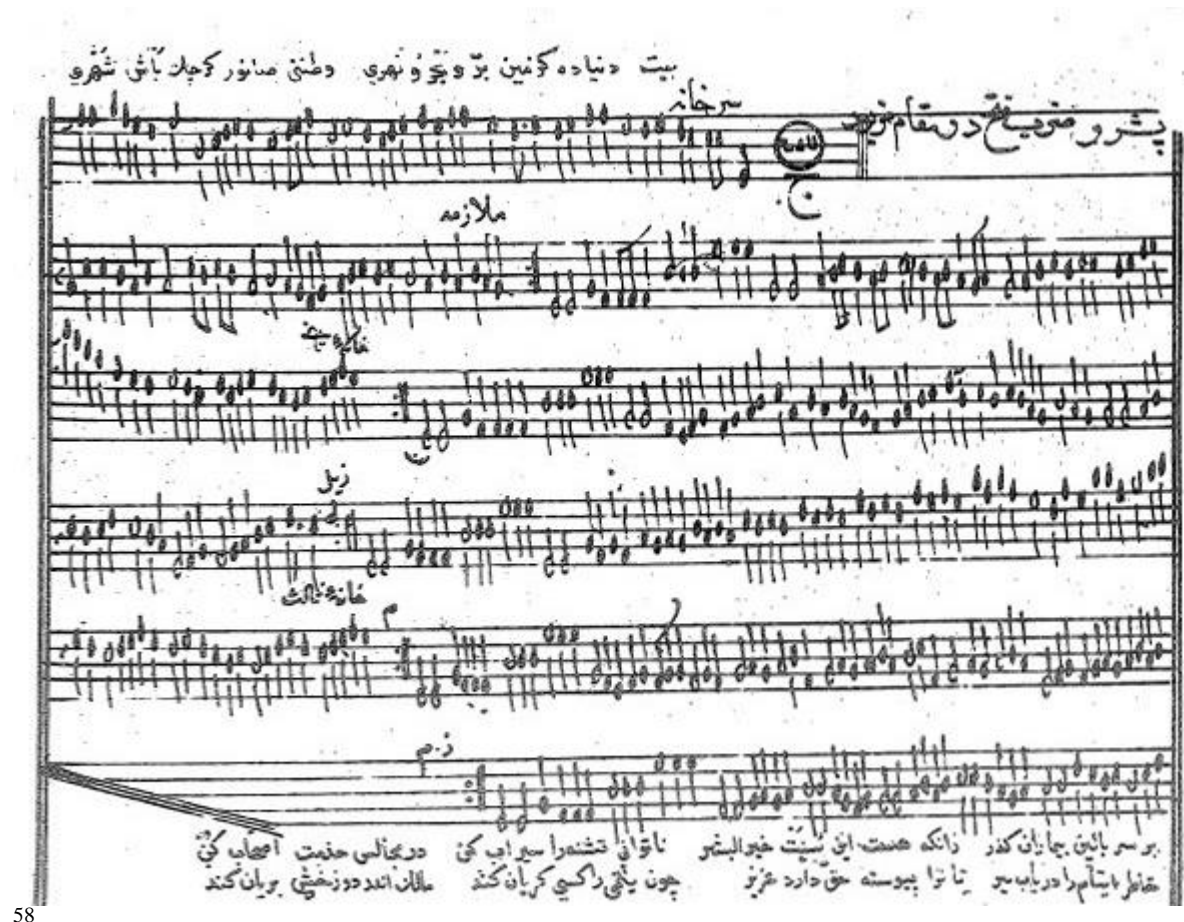 بيت دنياده كزمين برّ و بحر و نهري وطننى صانور كوچك باشى شهري
سرخانه
پشرو مقام
ج
ملازمه
خانهٔ
زيل
خانهٔ ثالث
م
ز.م
بر سر بالين بيماران كذر زانكه هست اين سنّت خير البشر تا توانى تشنه را سيراب كن در مجالس خدمت اصحاب كن
خاطر ايتام را درياب تا ترا پيوسته حق دارد عزيز چون يتيمى را كسى كريان كند مالك اندر دوزخش بريان كند
58